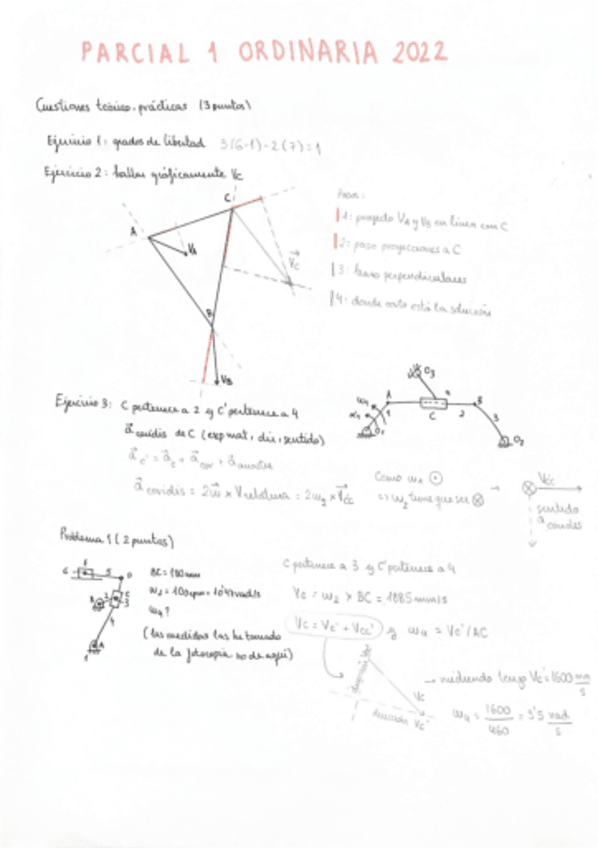 PARCIAL 1 ORDINARIA 2022
Cuestiones teórico-prácticas (3 puntos)
Ejercicio 1: grados de libertad 3(6-1)-2(7)=1
Ejercicio 2: hallar gráficamente Vc
C
A
VA
Vc
B
VB
Pasos:
1: proyecto VA y VB en línea con C
2: paso proyecciones a C
3: trazo perpendiculares
4: donde corte está la solución
Ejercicio 3: C pertenece a 2 y C' pertenece a 4
a coriolis de C (exp mat, dir, sentido)
a coriolis = 2ω × V relativa = 2ω2 × Vcc'
O3
A
4
B
1
C
2
3
O1
O2
Como ω1 ⊙
⇒ ω2 tiene que ser ⊗
→
sentido
a coriolis
Problema 1 (2 puntos)
6
5
D
B
2
C
3
4
A
1
BC = 180mm
ω2 = 100rpm = 10'47rad/s
ω4?
(las medidas las he tomado
de la fotocopia no de aquí)
C pertenece a 3 y C' pertenece a 4
Vc = ω2 × BC = 1885mm/s
Vc = Vc' + Vcc' y ω4 = Vc'/AC
Vc
dirección Vc'
→ midiendo tengo Vc' = 1600 mm/s
ω4 = 1600/460 = 3'5 rad/s